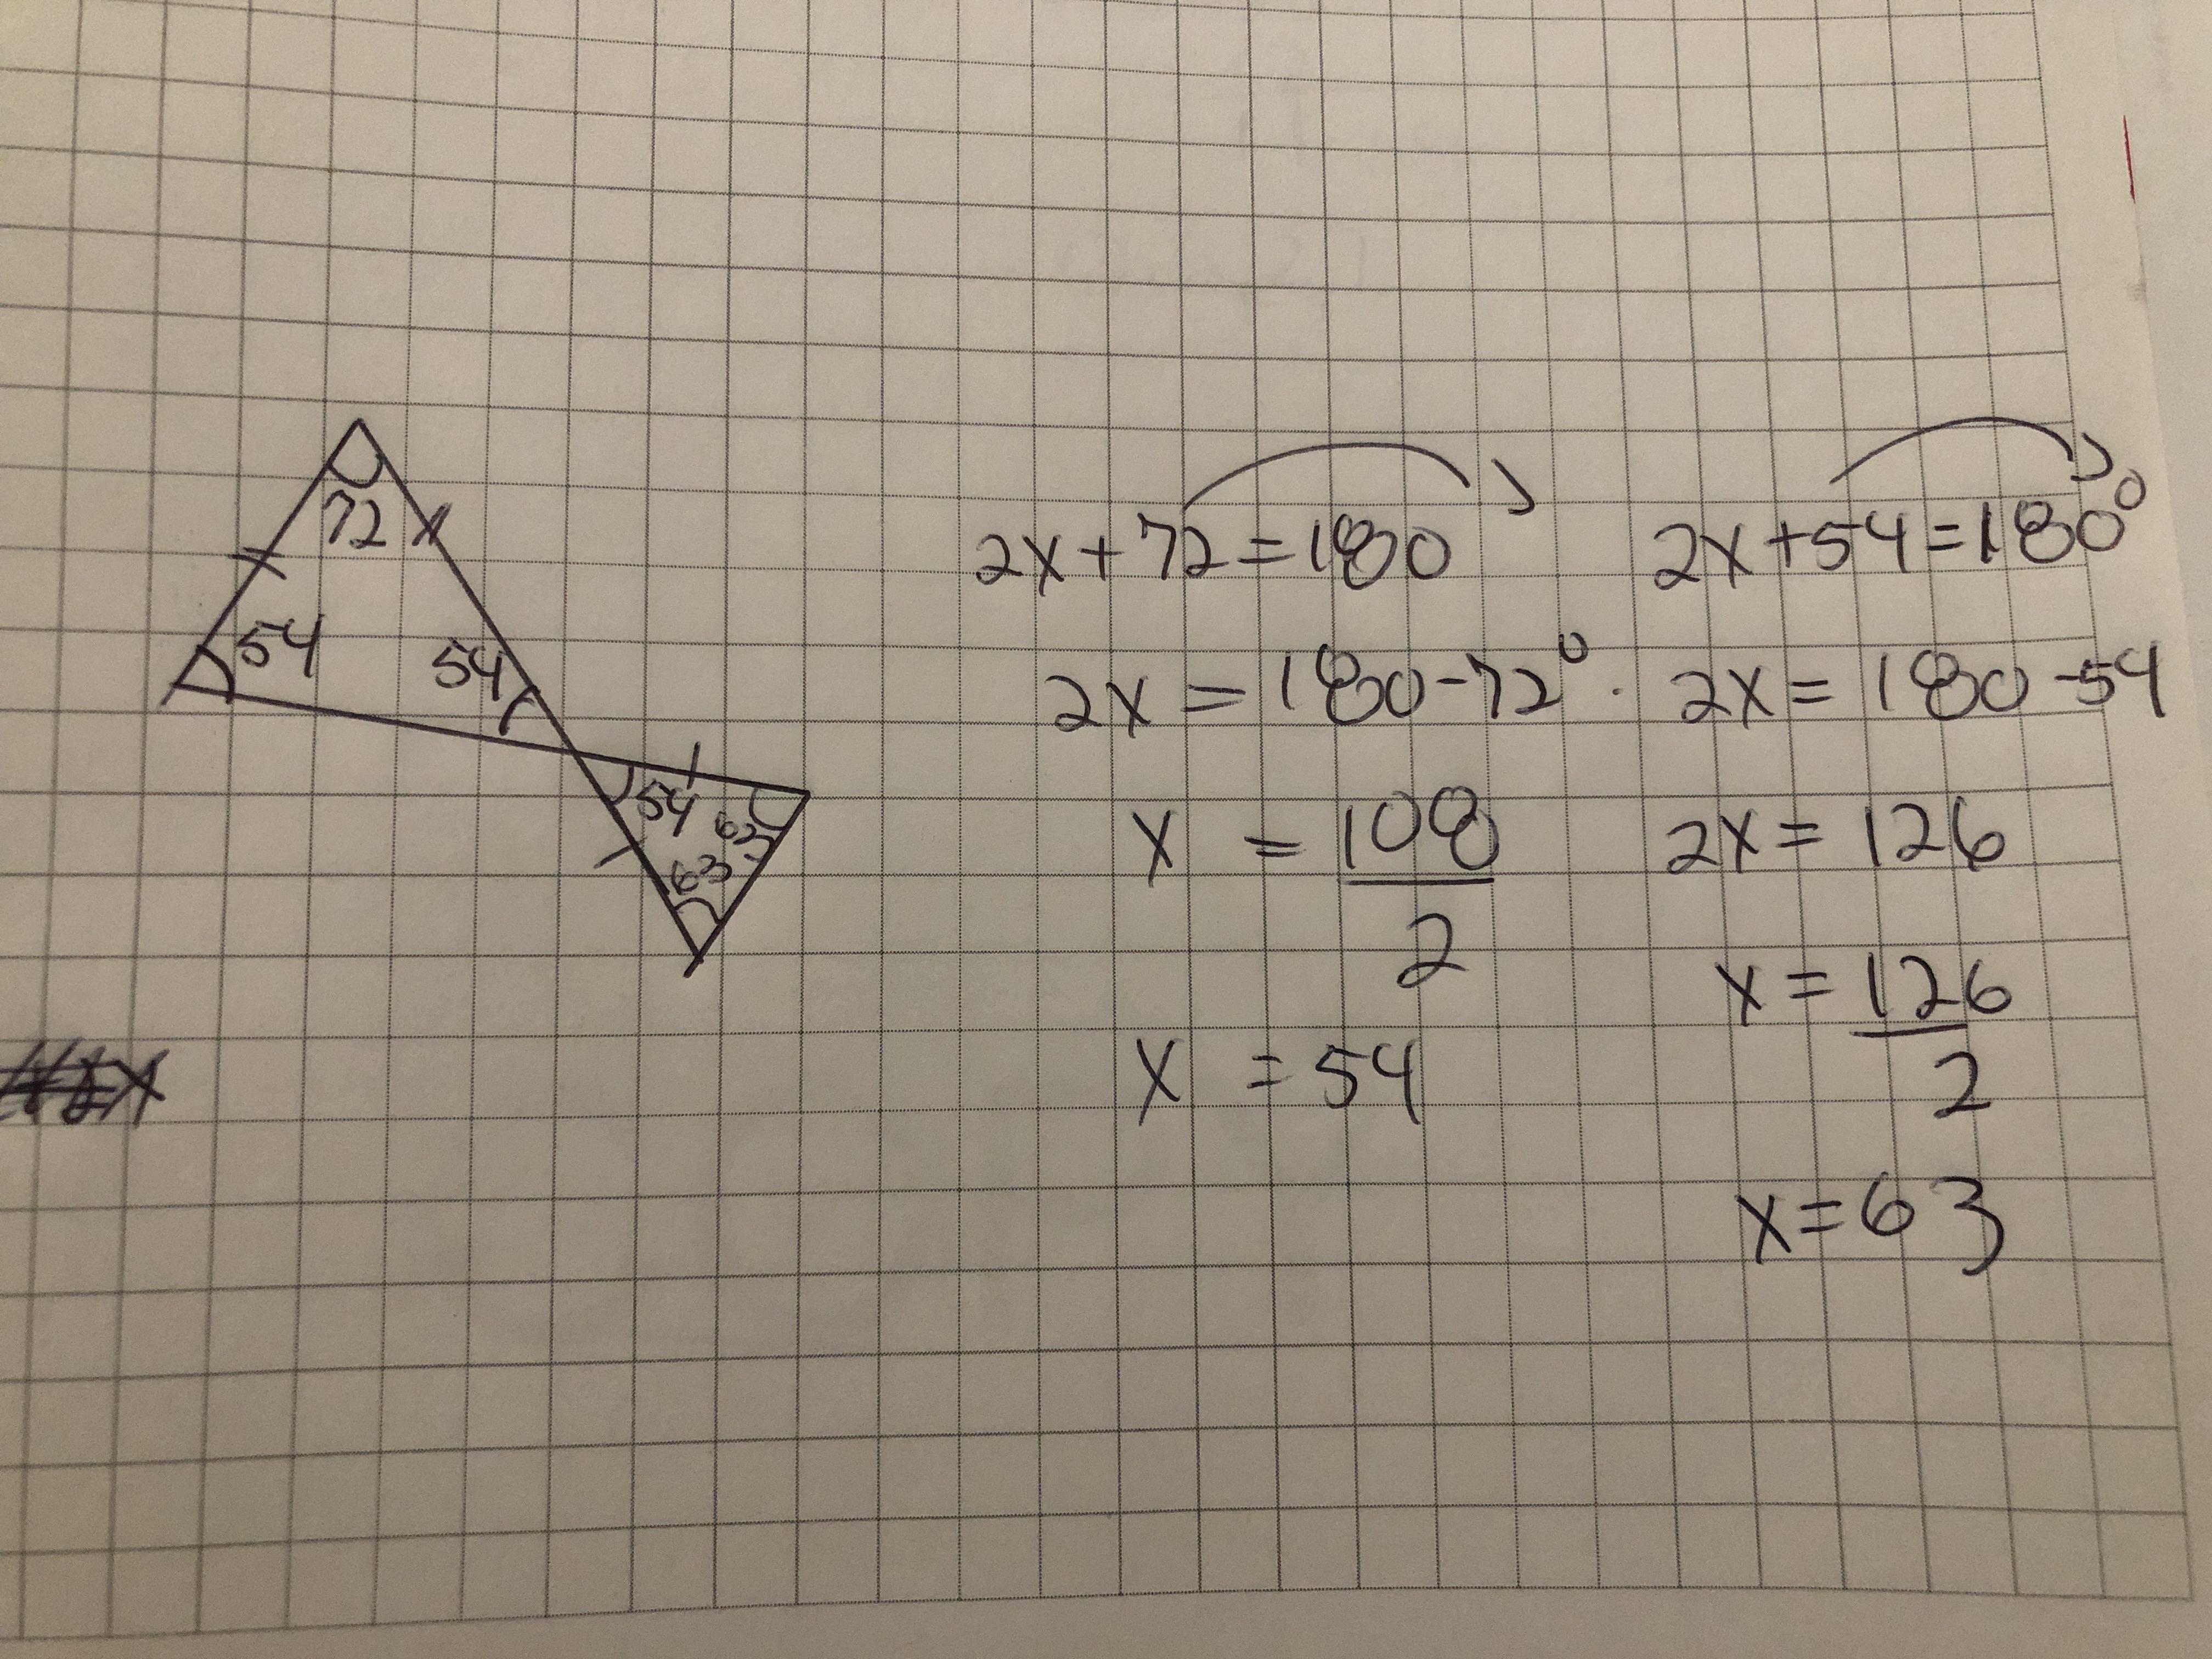 72
54
54
54
63
63
2x+72=180
2x=180-72°
x=108
2
x=54
2x+54=180°
2x=180-54
2x=126
x=126
2
x=63